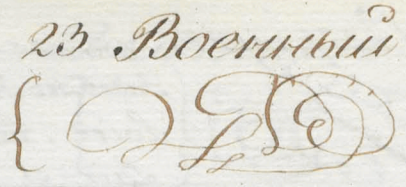 23 Военный